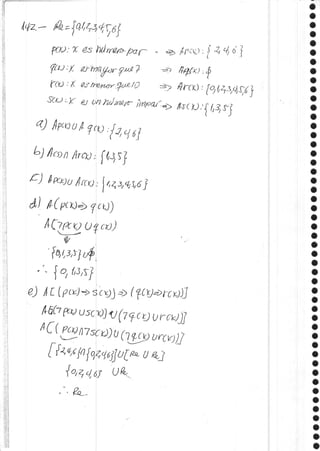 142.- Re={0,1,2,3,4,5,6}
p(x): x es número par. ⇒ Ap(x): {2,4,6}
q(x): x es mayor que 7 ⇒ Aq(x): φ
r(x): x es menor que 10 ⇒ Ar(x): {0,1,2,3,4,5,6}
s(x): x es un número impar ⇒ As(x): {1,3,5}
a) Ap(x) U A q(x): {2,4,6}
b) A(x) ∩ Ar(x): {1,3,5}
c) Ap(x) U As(x): {1,2,3,4,5,6}
d) A(p(x) ⇒ q(x))
A(¬p(x) U q(x))
{0,1,3,5} U φ
∴ {0,1,3,5}
e) A[(p(x) ⇒ s(x)) ⇒ (q(x) ⇒ r(x))]
A[(¬p(x) U s(x)) U (¬q(x) U r(x))]
A[(p(x) ∩ ¬s(x)) U (¬q(x) U r(x))]
[{2,4,6} ∩ {0,2,4,6}] U [Re U Re]
{0,2,4,6} U Re
∴ Re